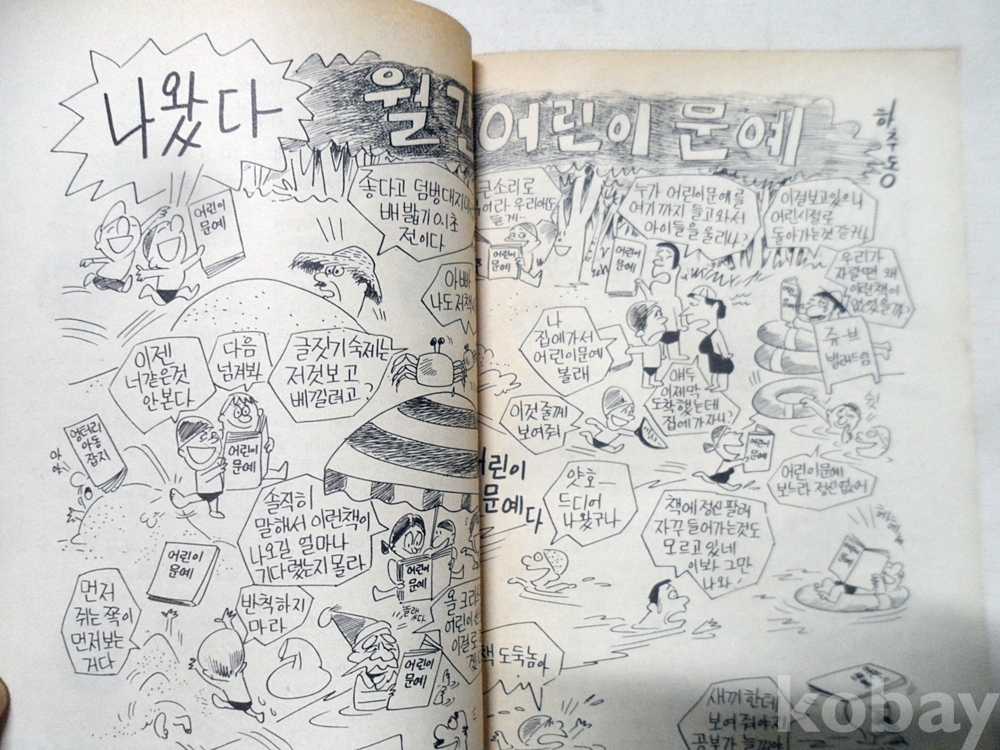 나왔다
월간 어린이 문예
하주동
어린이
문예
좋다고 덤벙대지마
배 밟기 0.1초
전이다
큰소리로
우리에도
들게…
어린이
문예
누가 어린이문예를
여기까지 들고와서
아이들을 울리나?
어린이
문예
이걸보고있으니
어린시절로
돌아가는것 같거나
우리가
자랄땐 왜
이런책이
없었을까?
아빠
나도 저책
쥬브
이젠
너같은것
안본다
다음
넘겨봐
글짓기숙제는
저것보고
베낄려고?
나
집에가서
어린이문예
볼래
얘두
이제막
도착했는데
집에 가자니?
엉터리
아동
잡지
어린이
문예
이것 줄께
보여줘
어린이
문예
어린이문예
보느라 정신없어
어린이
문예다
얏호…
드디어
나왔구나
솔직히
말해서 이런책이
나오길 얼마나
기다렸는지 몰라
책에 정신 팔려
자꾸 들어가는것도
모르고 있네
이봐 그만
나와
어린이
문예
어린이
문예
먼저
쥐는 쪽이
먼저보는
거다
반칙하지
마라
올 크리
어린이
이걸로
어린이
문예
책 도둑놈아
새끼한테
보여 줘야지
kobay